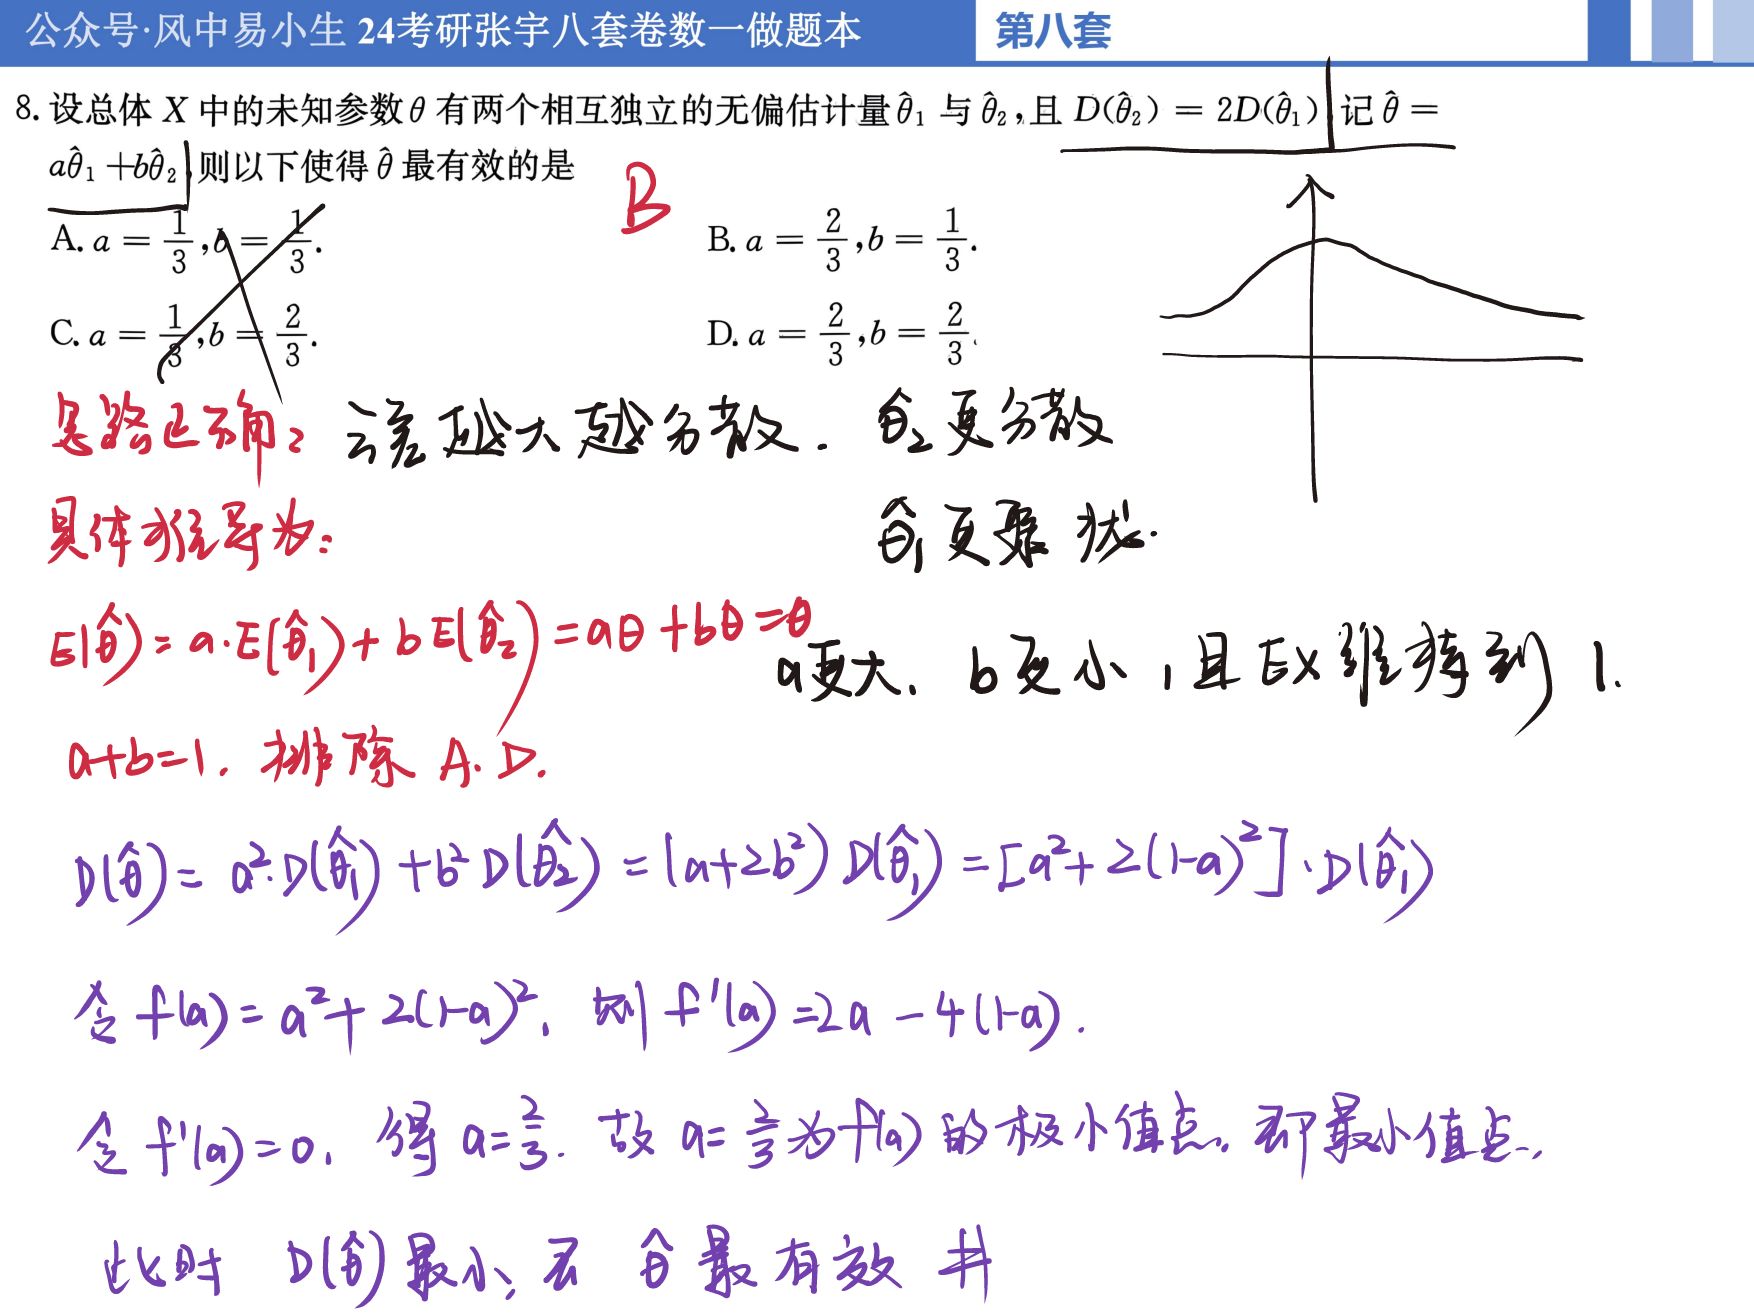 公众号·风中易小生 24考研张宇八套卷数一做题本 第八套
8. 设总体 X 中的未知参数 θ 有两个相互独立的无偏估计量 θ̂₁ 与 θ̂₂,且 D(θ̂₂) = 2D(θ̂₁) 记 θ̂ =
aθ̂₁ + bθ̂₂ 则以下使得 θ̂ 最有效的是
B
A. a = 1/3, b = 1/3.
B. a = 2/3, b = 1/3.
C. a = 1/3, b = 2/3.
D. a = 2/3, b = 2/3.
思路正确:
方差越大越分散. θ̂₂更分散
具体推导为:
θ̂₁更聚拢.
E(θ̂) = a·E(θ̂₁) + bE(θ̂₂) = aθ + bθ = θ
a更大, b更小, 且EX维持到1.
a+b=1. 排除 A. D.
D(θ̂) = a²·D(θ̂₁) + b²D(θ̂₂) = (a+2b²)D(θ̂₁) = [a²+2(1-a)²]·D(θ̂₁)
令 f(a) = a²+2(1-a)², 则 f'(a) = 2a-4(1-a).
令 f'(a) = 0, 得 a=2/3. 故 a=2/3 为 f(a) 的极小值点. 即最小值点.
此时 D(θ̂) 最小, θ̂ 最有效